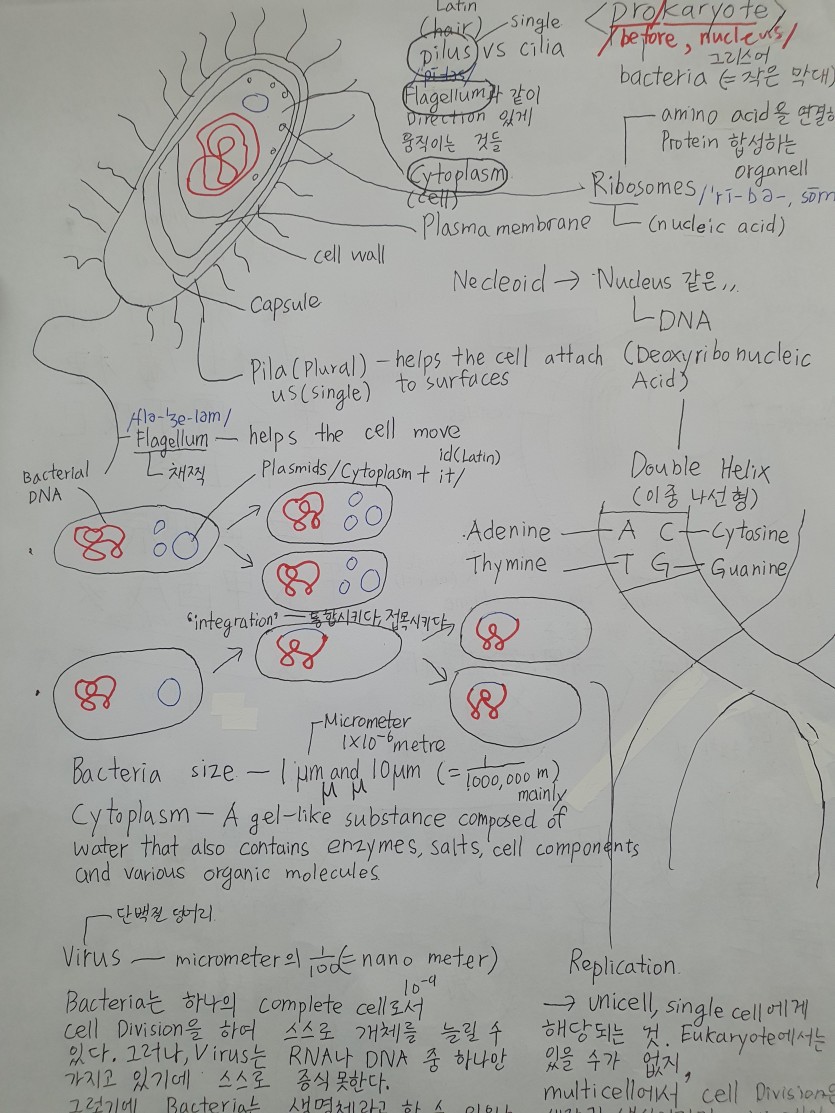 Latin
(hair)
single
<prokaryote>
pilus vs cilia
/before, nucleus/
그리스어
bacteria (= 작은 막대)
Flagellum과 같이
Direction 있게
움직이는 것들
amino acid을 연결
Protein 합성하는
organell
Cytoplasm
(cell)
Ribosomes /'rī-bə-, sōm
(nucleic acid)
Plasma membrane
cell wall
Capsule
Necleoid → Nucleus 같은,,
DNA
(Deoxyribonucleic
Acid)
Pila (Plural) – helps the cell attach
us (single) to surfaces
/flə-ʒe-ləm/
Flagellum – helps the cell move
채찍
Bacterial
DNA
Plasmids/Cytoplasm + it/
id(Latin)
Double Helix
(이중 나선형)
Adenine A C Cytosine
Thymine T G Guanine
"integration" – 통합시키다, 접목시키다
Micrometer
1×10⁻⁶ metre
Bacteria size – 1 μm and 10μm (= 1/1000,000 m)
μ μ
mainly
Cytoplasm – A gel-like substance composed of
water that also contains enzymes, salts, cell components
and various organic molecules.
단백질 덩어리
Virus – micrometer의 1/100 (= nano meter)
10⁻⁹
Bacteria는 하나의 complete cell로서
cell Division을 하여 스스로 개체를 늘릴 수
있다. 그러나, Virus는 RNA나 DNA 중 하나만
가지고 있기에 스스로 증식 못한다.
그렇기에 Bacteria는 생명체라고 할 수
Replication.
→ unicell, single cell에게
해당되는 것. Eukaryote에서는
있을 수가 없지,
multicell에서 cell Division은